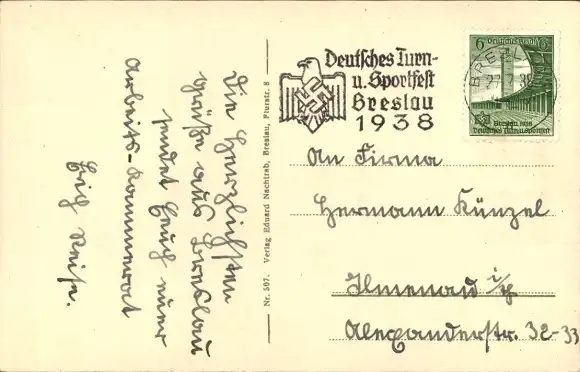 Die herzlichsten
Grüße aus Breslau
sendet Euch euer
Arbeits-Kammerad
Erich Reise.
Nr. 507. Verlag Eduard Nachtrab, Breslau, Flurstr. 8
Deutsches Turn-
u. Sportfest
Breslau
1938
BRESL
27.7.38
6 Deutsches Reich 6
Breslau 1938
Deutsches Turn u. Sportfest
An Firma
Hermann Künzel
Ilmenau i/Th
Alexanderstr. 32-33